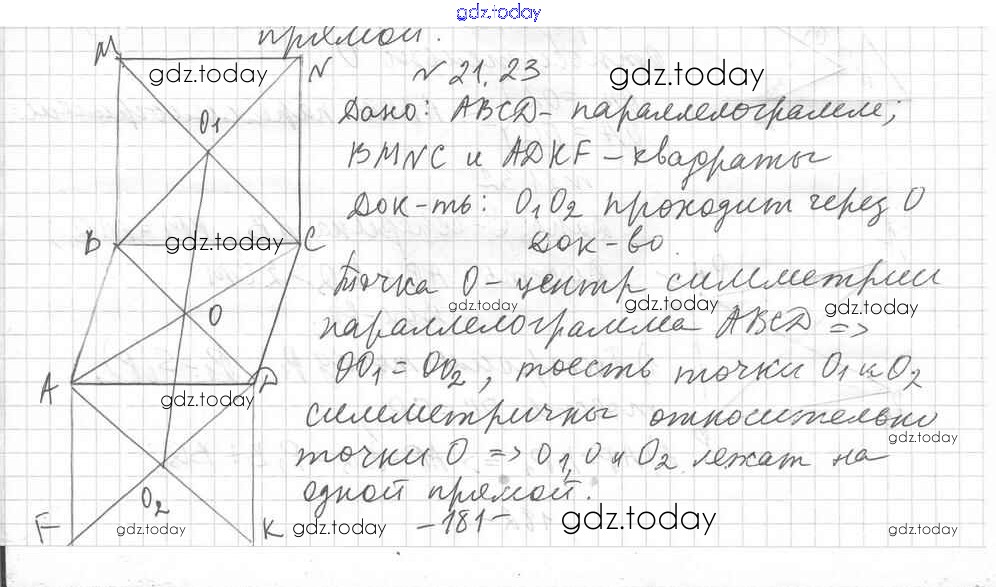 gdz.today
прямой.
№ 21.23
gdz.today
gdz.today
M
N
O1
Дано: ABCD - параллелограмм;
BMNC и ADKF - квадраты
Док-ть: O1O2 проходит через O
Док-во.
B
gdz.today
C
Точка O - центр симметрии
gdz.today
gdz.today
gdz.today
параллелограмма ABCD =>
O
OO1 = OO2, тоесть точки O1 и O2
A
D
gdz.today
симметричны относительно
gdz.today
точки O => O1, O и O2 лежат на
одной прямой.
O2
F
gdz.today
K
gdz.today
-181-
gdz.today
gdz.today